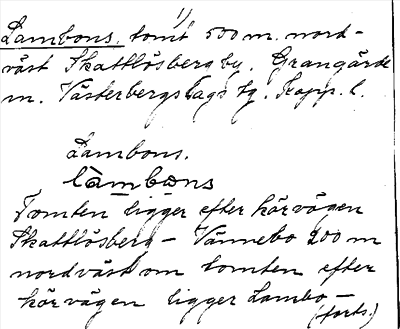 1)
Lambons, tomt 500 m. nord-
väst Skattlösberg by. Grangärde
m. Västerbergslags tg. Kopp. l.
Lambons.
làmbo̤ns
Tomten ligger efter körvägen
Skattlösberg – Vännebo 200 m
nordväst om tomten efter
körvägen ligger Lambo–
(forts.)